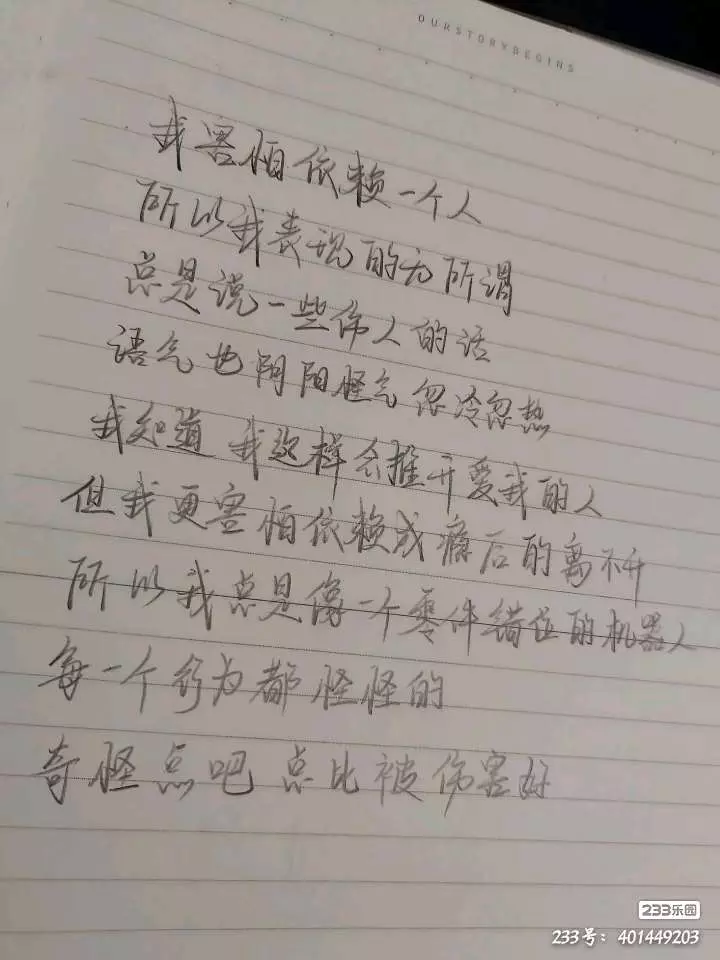 OURSTORYBEGINS
我害怕依赖一个人
所以我表现的无所谓
总是说一些伤人的话
语气也阴阳怪气忽冷忽热
我知道 我这样会推开爱我的人
但我更害怕依赖成瘾后的离不开
所以我总是像一个零件错位的机器人
每一个行为都怪怪的
奇怪点吧 总比被伤害好
233乐园
233号：401449203